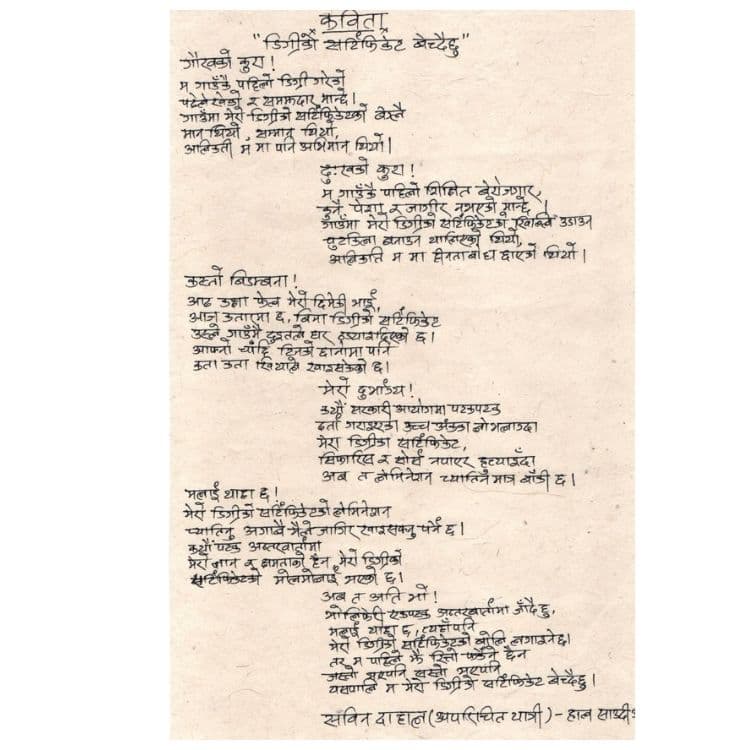 कविता
"डिग्रीको सर्टिफिकेट बेच्दैछु"
गौरवको कुरा !
म गाउँकै पहिलो डिग्री गरेको
पढेलेखेको र समझदार मान्छे।
गाउँमा मेरो डिग्रीको सर्टिफिकेटको बेग्लै
मान थियो, सम्मान थियो,
अलिकती म मा पनि अभिमान थियो।
दुःखको कुरा !
म गाउँकै पहिलो शिक्षित बेरोजगार,
कुनै पेशा र जागीर नभएको मान्छे ।
गाउँमा मेरो डिग्रीको सर्टिफिकेटको खिल्ली उडाउन
चुटकिला बनाउन थालिएको थियो,
अलिकति म मा हीनताबोध छाएको थियो।
कस्तो बिडम्बना !
आठ कक्षा फेल मेरो छिमेकी भाई
आज कतारमा छ, बिना डिग्रीको सर्टिफिकेट
उसले गाउँमै दुइतले घर ठड्याइदिएको छ।
आफ्नो चाँहि टिनको छानामा पनि
कता कता खियाले खाइसकेको छ।
मेरो दुर्भाग्य !
कयौं सरकारी आयोगमा पटकपटक
दर्ता गराइएका उच्च अंकका
मेरा डिग्रीका सर्टिफिकेट,
सिफारिस र सोर्स नपाएर हुत्याइँदा
अब त लेमिनेशन च्यातिन मात्र बाँकी छ।
मलाई थाहा छ।
मेरो डिग्रीको सर्टिफिकेटको लेमिनेशन
च्यातिनु अगावै मैले जागिर खाइसक्नु पर्ने छ।
कयौं पटक अन्तरवार्तामा
मेरो ज्ञान र क्षमताको हैन, मेरो डिग्रीको
सर्टिफिकेटको मोलमोलाई भएको छ।
अब त अति भो !
भोलिफेरी एकपटक अन्तरवार्तामा जाँदैछु,
मलाई थाहा छ, त्यहाँ पनि
मेरो डिग्रीको सर्टिफिकेटको बोलि लगाइनेछ।
तर म पहिले झैं रित्तो फर्कने छैन
जस्तो भएपनि सस्तो भएपनि
यसपालि म मेरो डिग्रीको सर्टिफिकेट बेच्दैछु।
सविन दाहाल (अपरिचित यात्री) - हाल साउदी